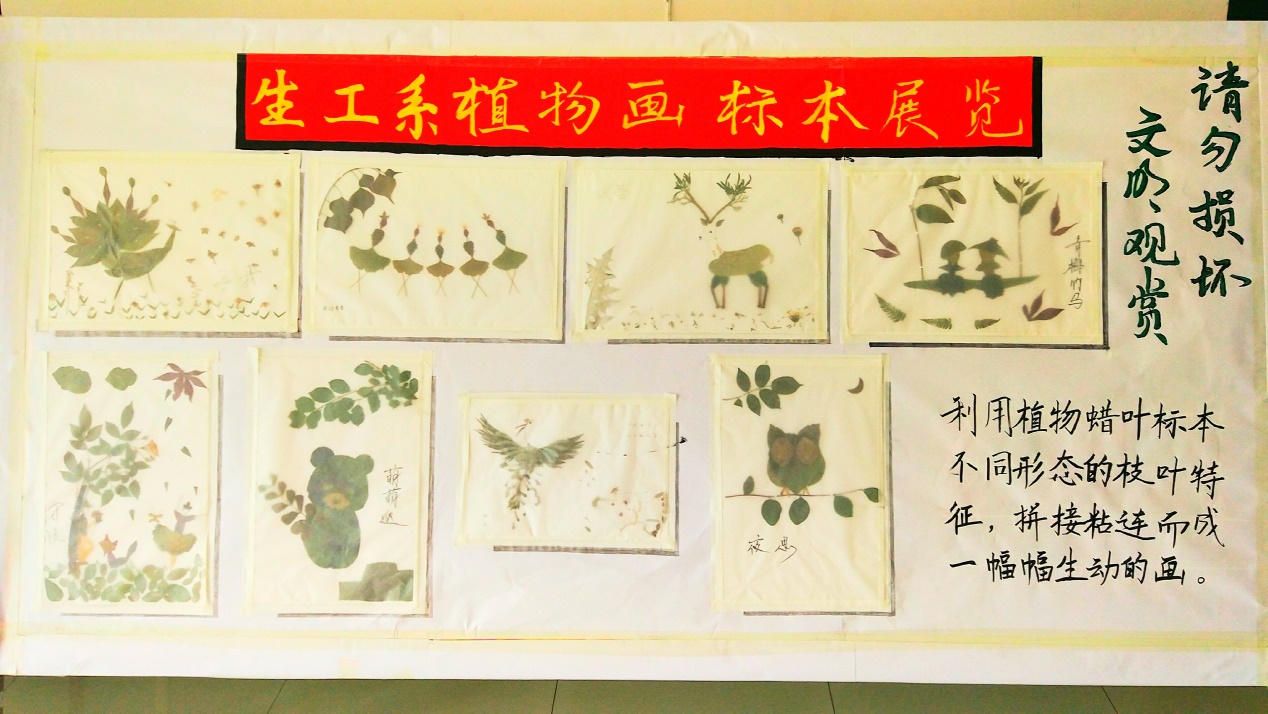 生工系植物画 标本展览
请勿损坏
文明观赏
青梅竹马
萌萌哒
夜思
利用植物蜡叶标本
不同形态的枝叶特
征，拼接粘连而成
一幅幅生动的画。